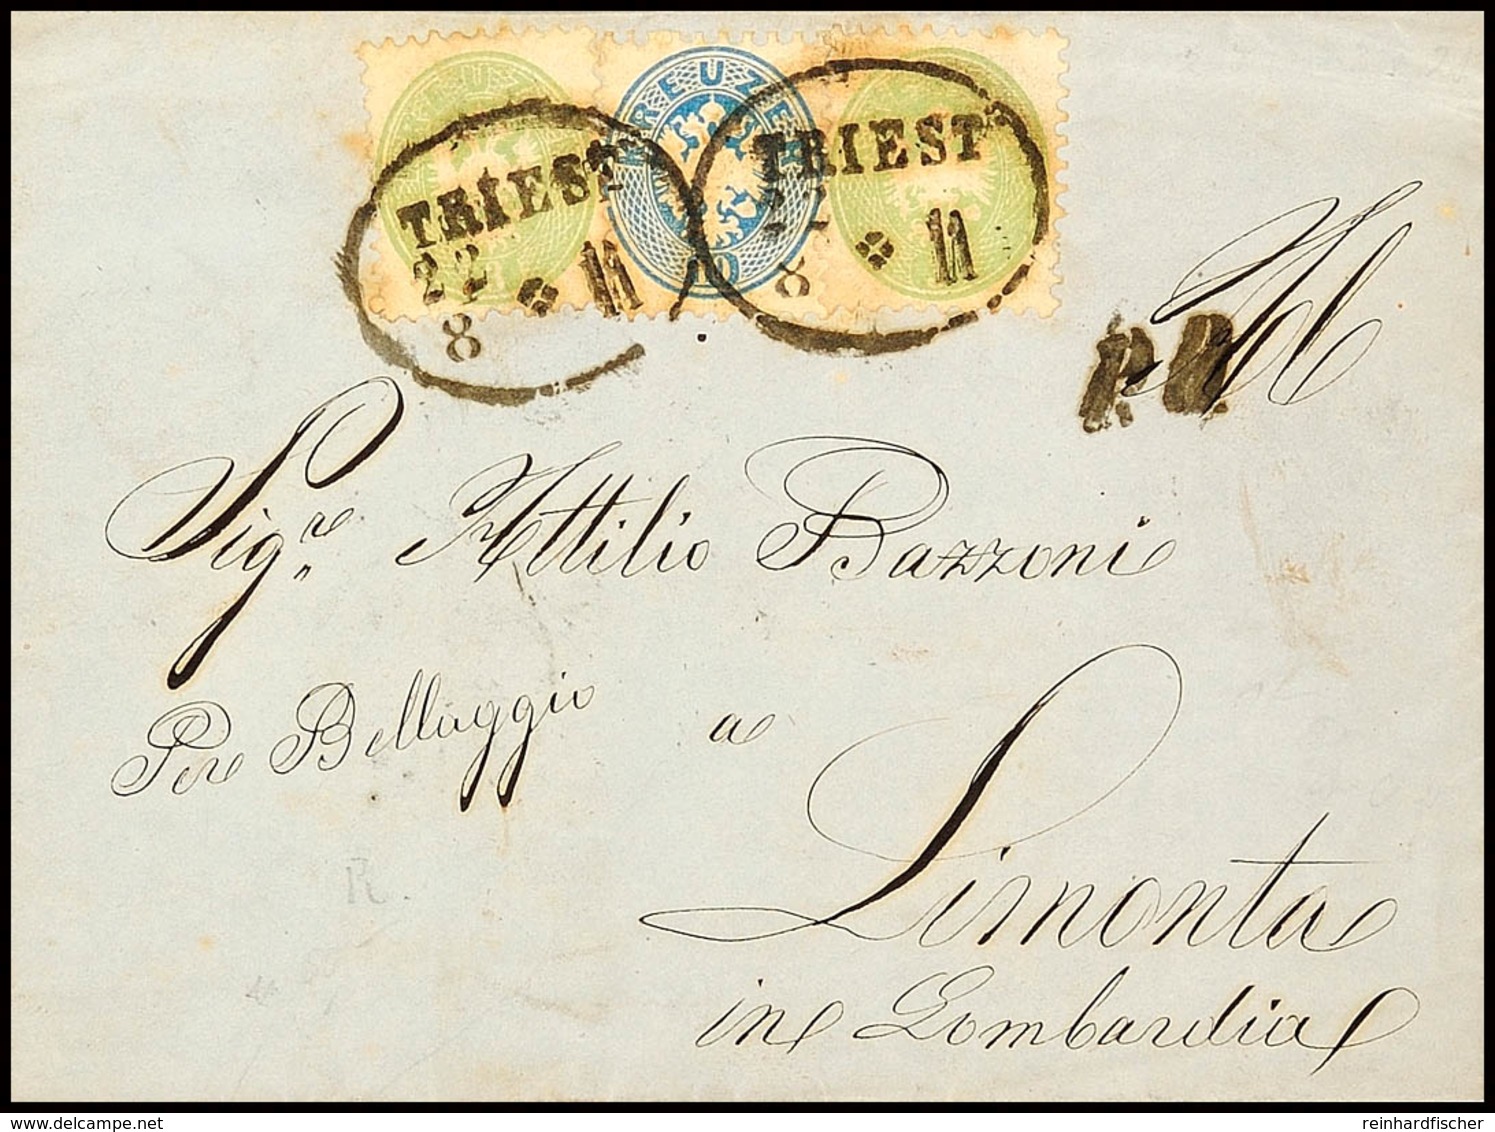 KREUZER
10
TRIEST
22
8 11
TRIEST
22
8 11
Al
P.D.
Sigre Attilio Bazzoni
Per Bellaggio a
Limonta
in Lombardia
R.
reinhardfischer